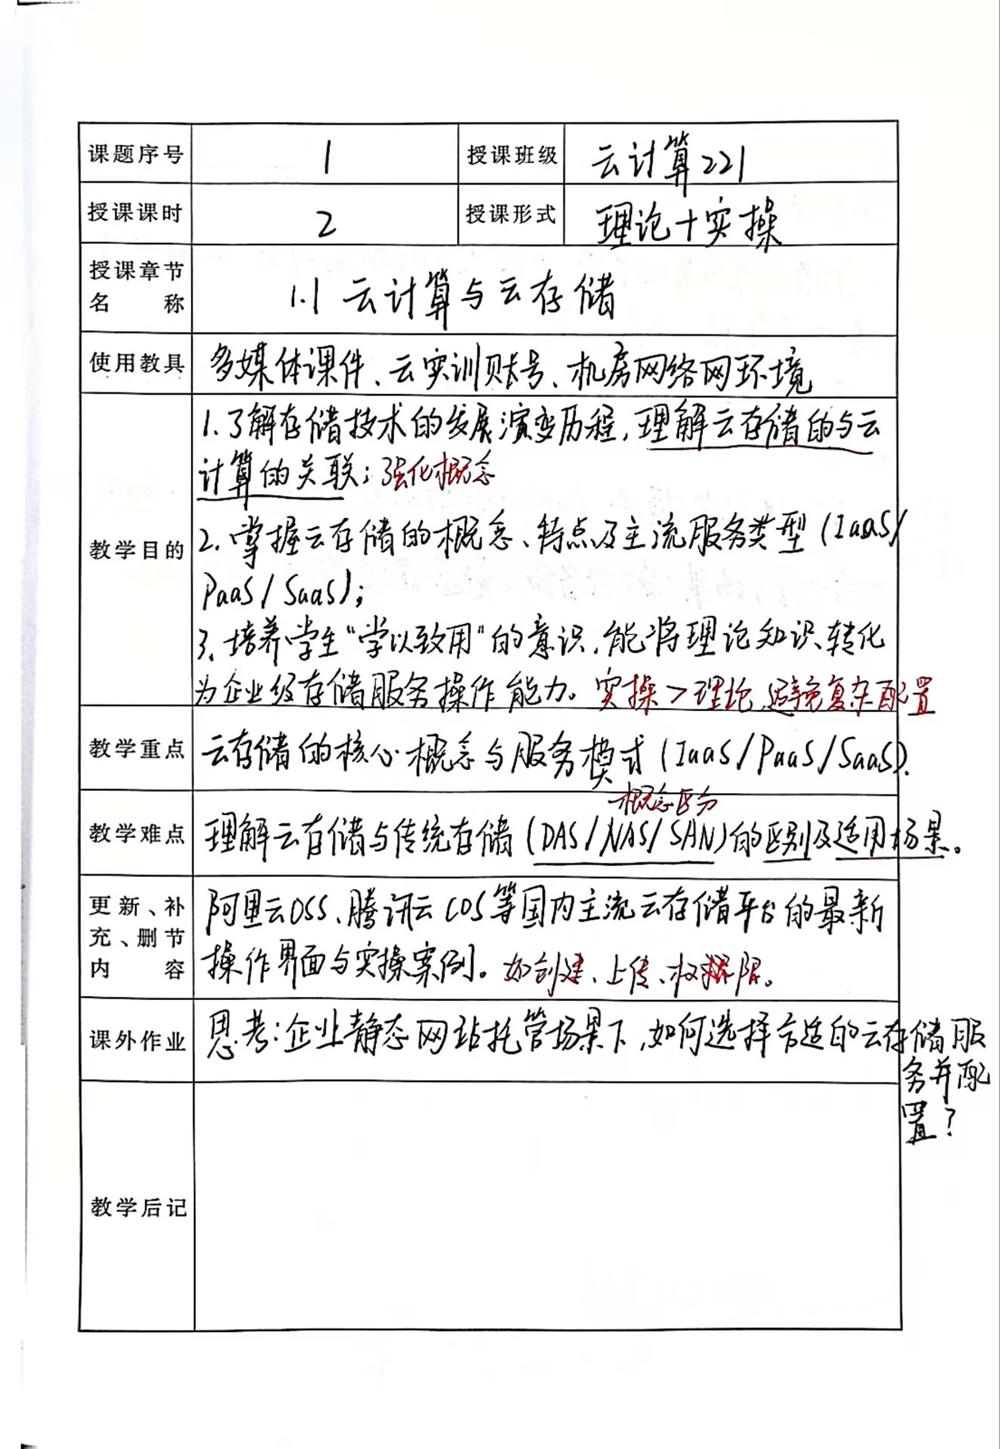 课题序号 1 授课班级 云计算221
授课课时 2 授课形式 理论+实操
授课章节
名称 1.1 云计算与云存储
使用教具 多媒体课件、云实训账号、机房网络网环境
1.了解存储技术的发展演变历程,理解云存储的与云
计算的关联;强化概念
教学目的 2.掌握云存储的概念、特点及主流服务类型(IaaS/
PaaS/SaaS);
3.培养学生"学以致用"的意识,能将理论知识转化
为企业级存储服务操作能力。实操>理论,避免复杂配置
教学重点 云存储的核心概念与服务模式(IaaS/PaaS/SaaS).
概念区分
教学难点 理解云存储与传统存储(DAS/NAS/SAN)的区别及适用场景。
更新、补
充、删节
内容
阿里云OSS、腾讯云COS等国内主流云存储平台的最新
操作界面与实操案例。如创建、上传、权限。
课外作业 思考:企业静态网站托管场景下,如何选择合适的云存储服
务并配
置?
教学后记